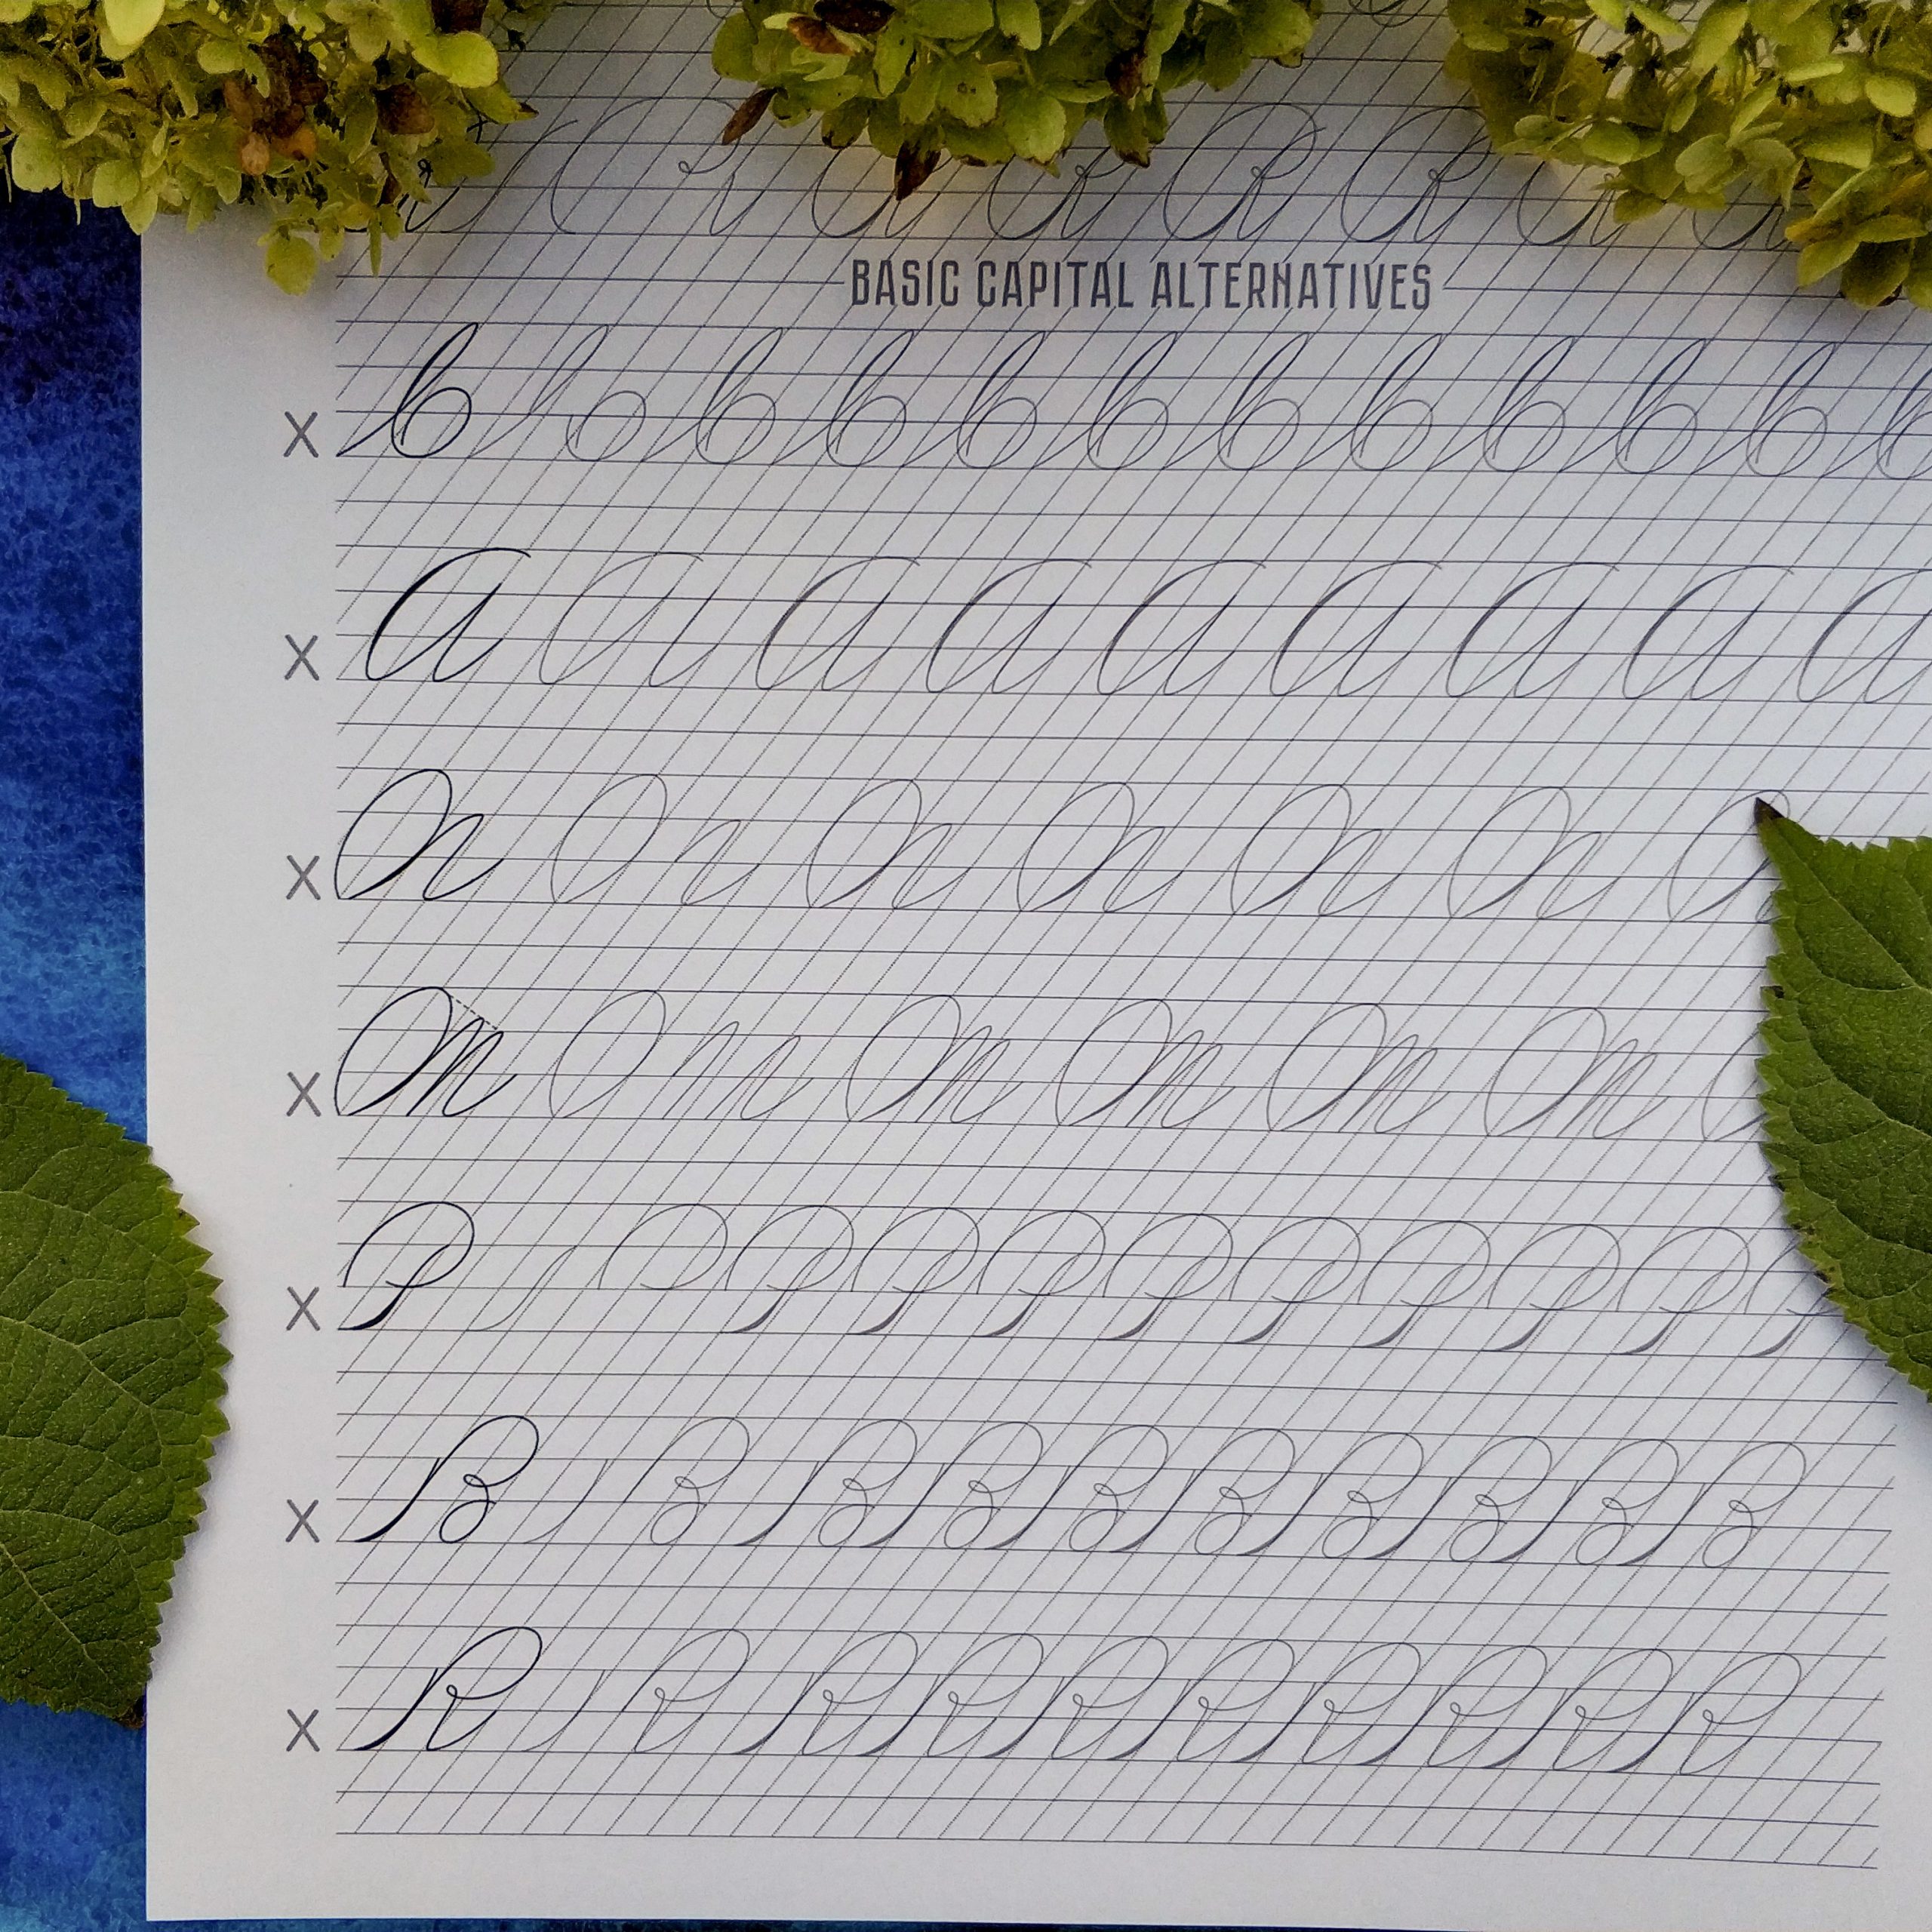 BASIC CAPITAL ALTERNATIVES
X b b b b b b b b b b
X A A A A A A A
X N N N N N
X M M M M M
X P P P P P P P P P
X B B B B B B B B B
X R R R R R R R R R